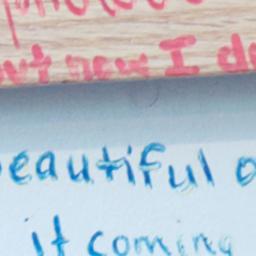 but now I do
beautiful o
it coming